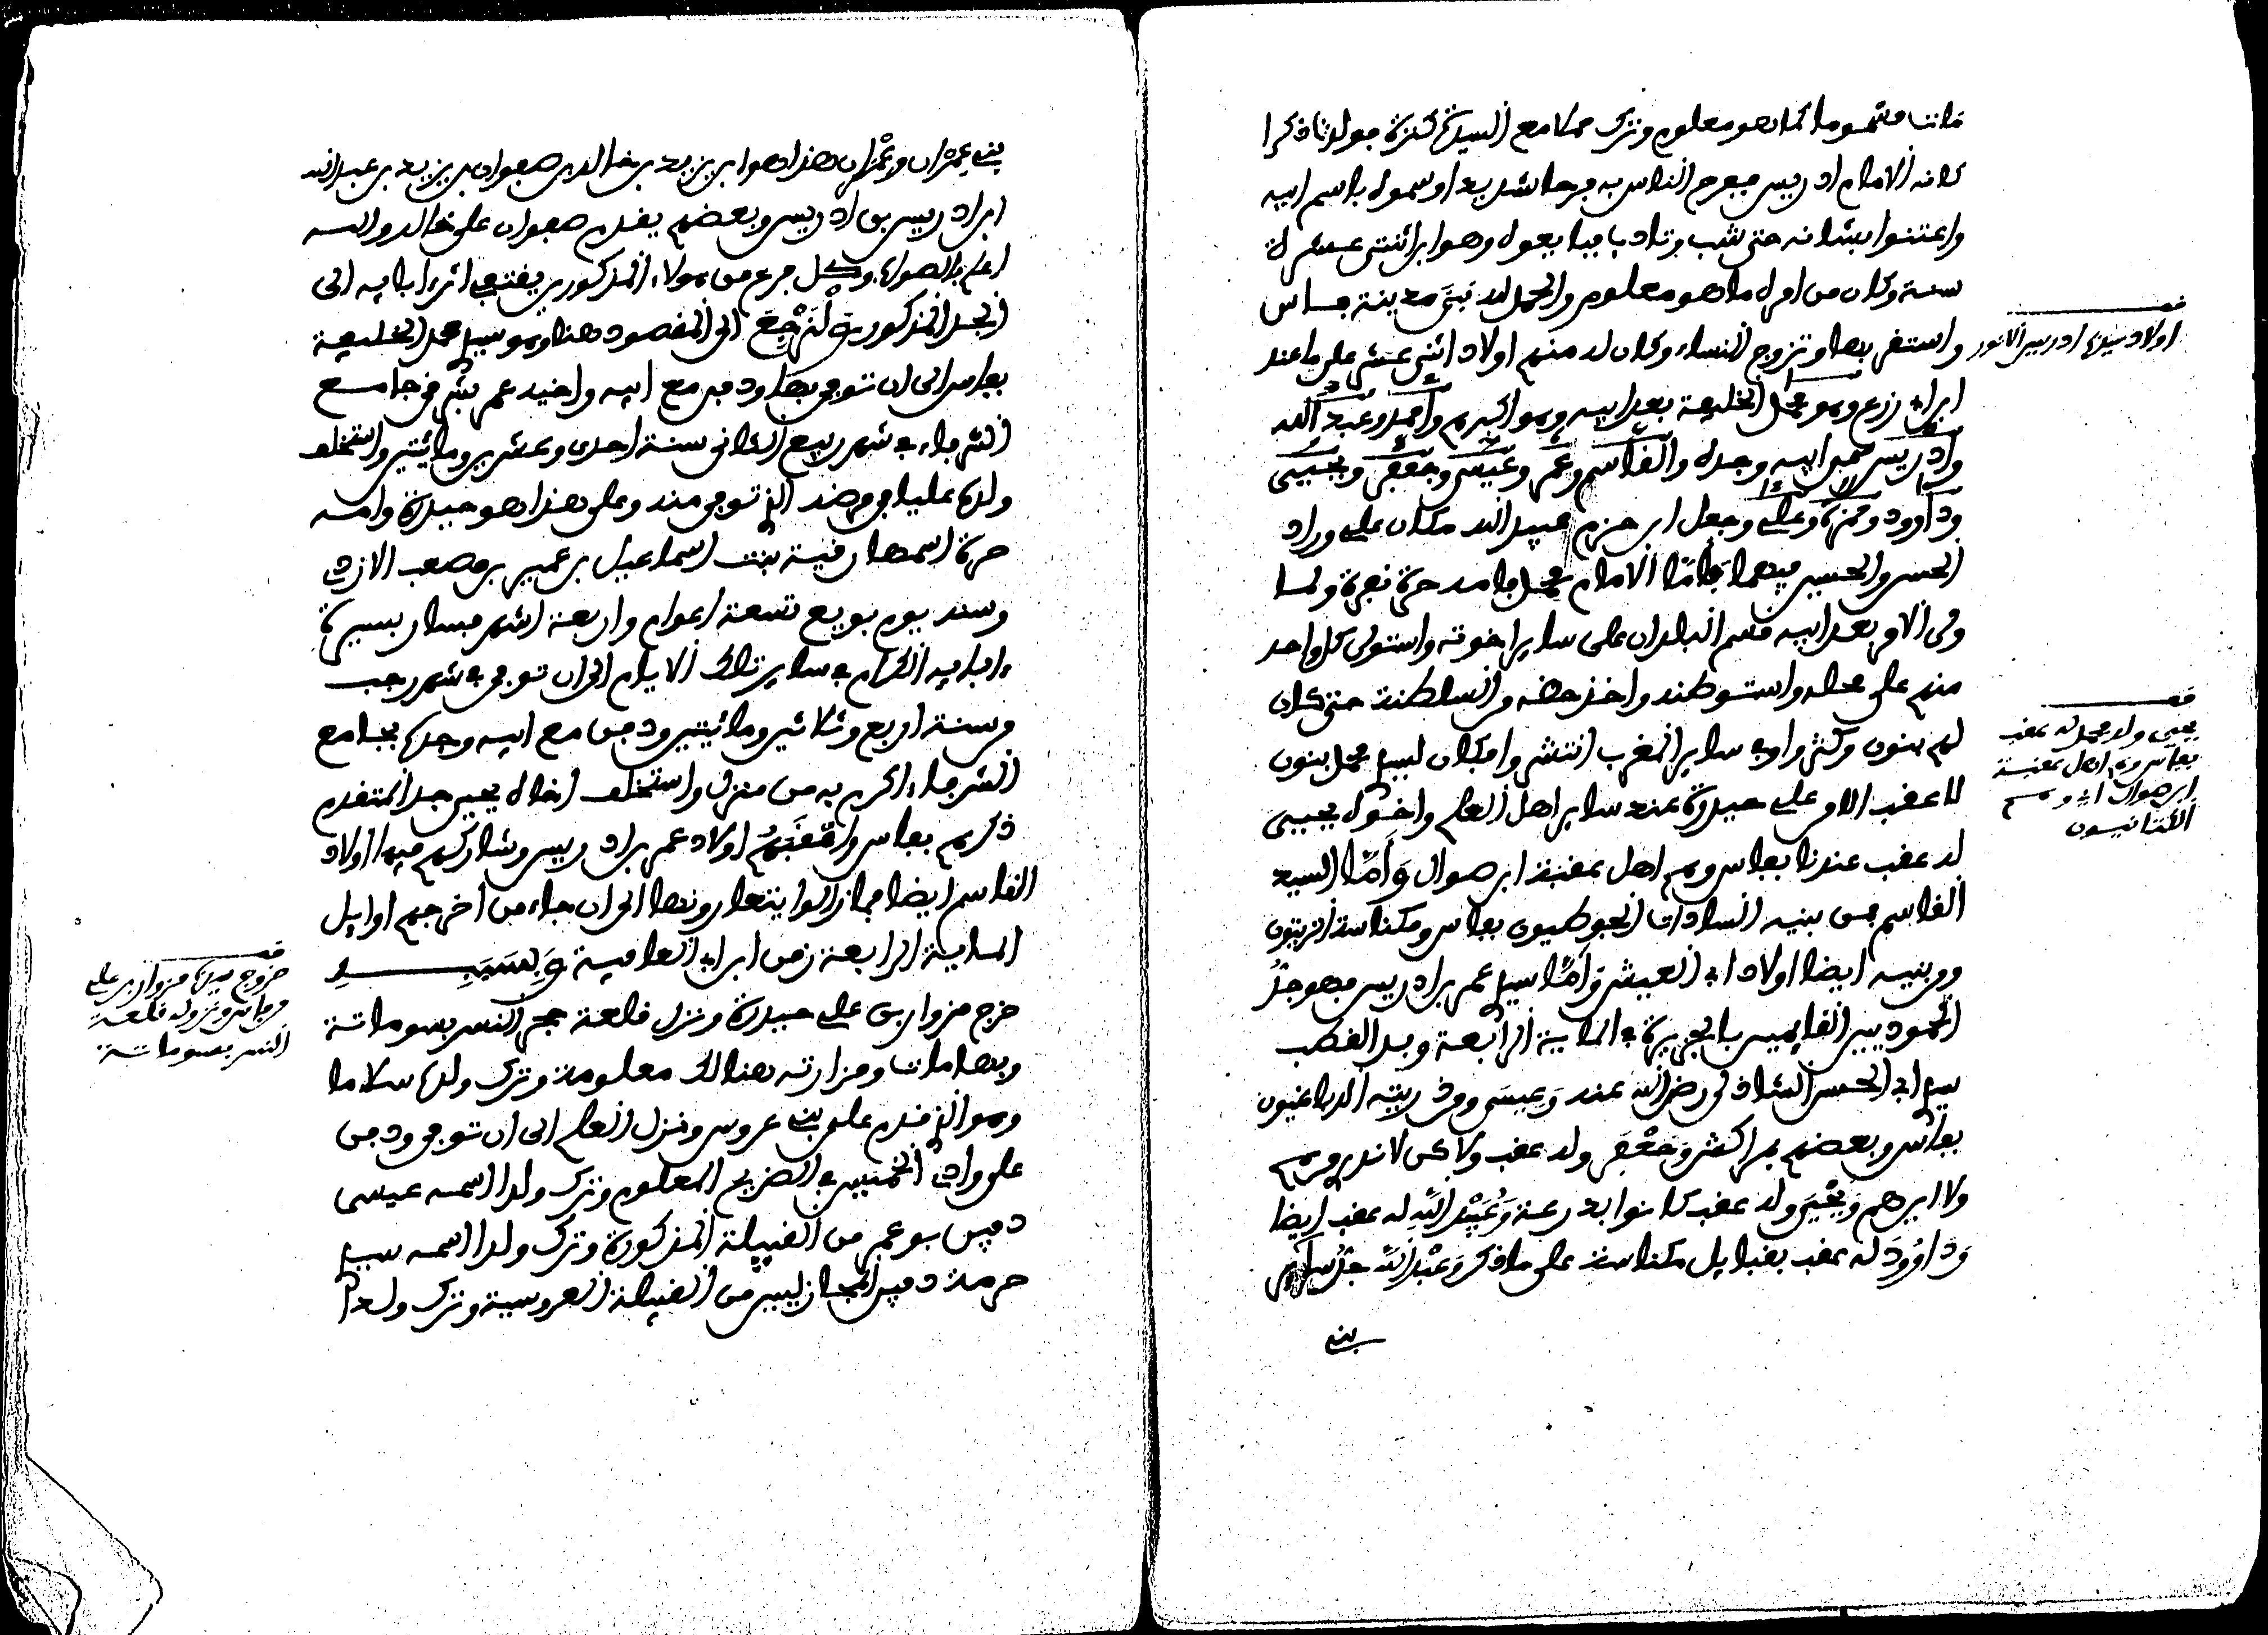 مات مسموما كما هو معلوم وترك حملا مع السيدة كنزة فولدت ذكرا
كانه الامام ادريس ففرح الناس به فرحا شديدا وسموه باسم ابيه
واعتنوا بشانه حتى شب وتادب فبايعوه وهو ابن اثنتى عشرة
سنة وكان من امره ما هو معلوم والحمد لله بنى مدينة فاس
واستقر بها وتزوج النساء وكان له منهم اولاد اثنى عشر على ما عند
ابن ابي زرع وهو محمد الخليفة بعد ابيه وهو اكبرهم واحمد وعبد الله
وادريس سمي ابيه وجده والقاسم وعمر وعيسى وجعفر ويحيى
وداوود وحمزة وعلي وجعل ابن حزم عبيد الله مكان علي وزاد
الحسن والحسين فيهما فاما الامام محمد فامه حرة نفزة ولما
ولى الامر بعد ابيه قسم البلدان على ساير اخوته واستولى كل واحد
منهم على محله واستوطنه واخذ حظه من السلطنة حتى كان
لهم بنون وكثروا وفي ساير المغرب انتشروا فكان لسيدي محمد بنون
لا عقب الا من علي حيدرة عند ساير اهل العلم واخوه يحيى
له عقب عندنا بفاس وهم اهل عقبة ابن صوال واما السيد
القاسم فمن بنيه السادات الجوطيون بفاس ومكناسة الزيتون
ومن بنيه ايضا اولاد ابي العيش واما سيدي عمر بن ادريس فهو جد
الحموديين القايمين بالجزيرة في الماية الرابعة وجد القطب
سيدي ابي الحسن الشاذلي رضي الله عنه وعيسى ومن ذريته الدباغيون
بفاس وبعضهم بمراكش وجعفر وله عقب ولاكن لا ندريهم
ولا ابرهم ويحيى وله عقب كانوا بدرعة وعبيد الله له عقب ايضا
وداوود له عقب بقبايل مكناسة على ما ذكر وعبد الله جد ساير
بنى
اولاد سيدنا ادريس الانور
يحيى ولد محمد له عقب
بفاس وهم اهل عقبة
ابن صوال اي وهم
الكتانيون
بنى عمران وعمران هذا هو ابن يزيد بن خالد بن صفوان بن يزيد بن عبد الله
ابن ادريس بن ادريس وبعضهم يقدم صفوان على خالد والله
اعلم بالصواب وكل فرع من هولاء المذكورين يقتفى اثر ابايه الى
الجد المذكور ثم لنرجع الى المقصود هنا وهو سيدي محمد الخليفة
بفاس الى ان توفى بها ودفن مع ابيه واخيه عمر بشرقي جامع
الشرفاء في شهر ربيع الثانى سنة احدى وعشرين ومائيتين واستخلف
ولده عليا في مرضه الذي توفى منه وعلى هذا هو حيدرة وامه
حرة اسمها رقية بنت اسماعيل بن عمير بن مصعب الازدي
وسنه يوم بويع تسعة اعوام واربعة اشهر فسار بسيرة
ءابايه الكرام في ساير تلك الايام الى ان توفى في شهر رجب
من سنة اربع وثلاثين ومائيتين ودفن مع ابيه وجده بجامع
الشرفاء اكرم به من منزل واستخلف اخاه يحيى جد المتقدم
ذكرهم بفاس واعقبهم اولاد عمر بن ادريس وشاركهم فيها اولاد
القاسم ايضا فما زالوا يتعاورونها الى ان جاء من اخرجهم اوايل
الماية الرابعة زمن ابن ابي العافية وبسببه
خرج مزوار بن علي حيدرة ونزل قلعة حجر النسر بسوماتة
وبها مات ومزارته هنالك معلومة وترك ولده سلاما
وهو الذي قدم على بني عروس ونزل العلم الى ان توفى ودفن
على وادي الخميس في الضريح المعلوم وترك ولدا اسمه عيسى
دفين بوعمر من القبيلة المذكورة وترك ولدا اسمه سيدي
حرمة دفين المجازليين من القبيلة العروسية وترك ولدا
خروج سيدنا مزوار بن علي
من فاس ونزوله قلعة
النسر بسوماتة